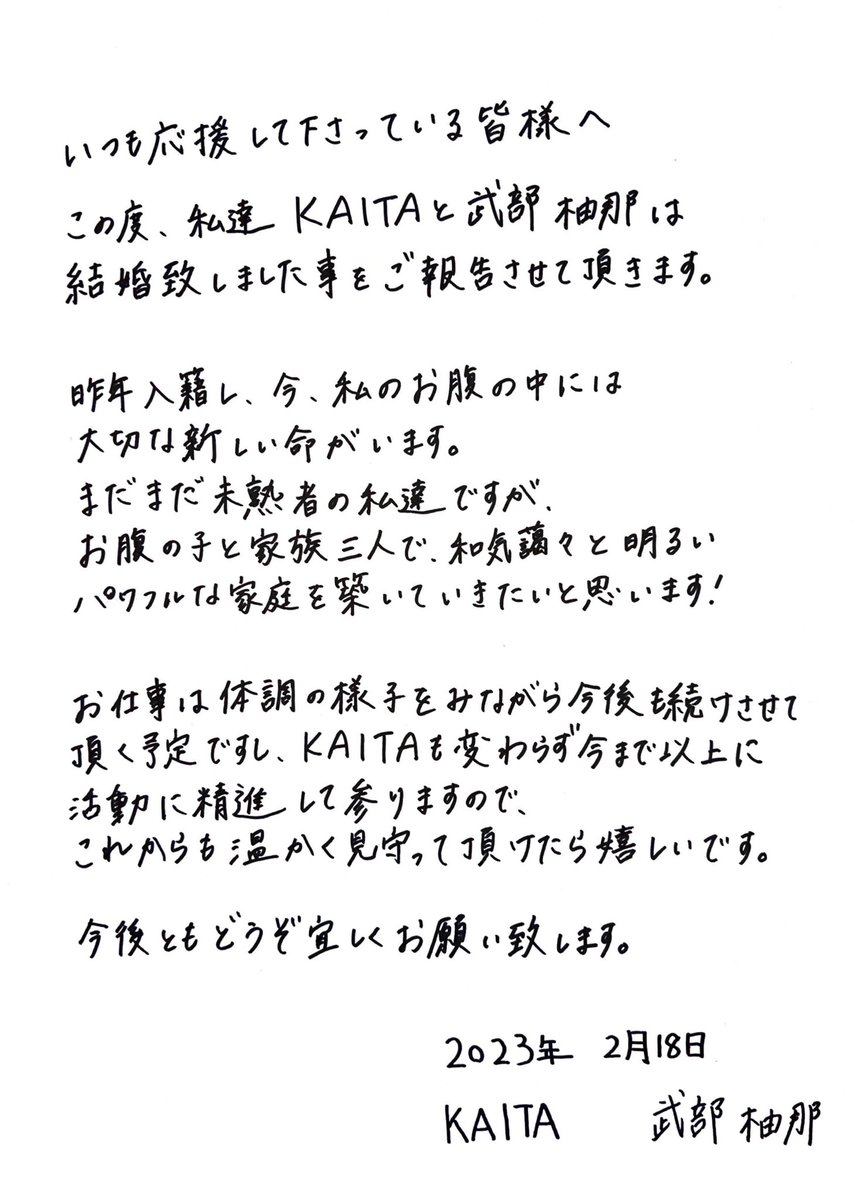 いつも応援して下さっている皆様へ
この度、私達 KAITAと武部 柚那は
結婚致しました事をご報告させて頂きます。
昨年入籍し、今、私のお腹の中には
大切な新しい命がいます。
まだまだ未熟者の私達ですが、
お腹の子と家族三人で、和気藹々と明るい
パワフルな家庭を築いていきたいと思います!
お仕事は体調の様子をみながら今後も続けさせて
頂く予定ですし、KAITAも変わらず今まで以上に
活動に精進して参りますので、
これからも温かく見守って頂けたら嬉しいです。
今後ともどうぞ宜しくお願い致します。
2023年 2月18日
KAITA 武部 柚那